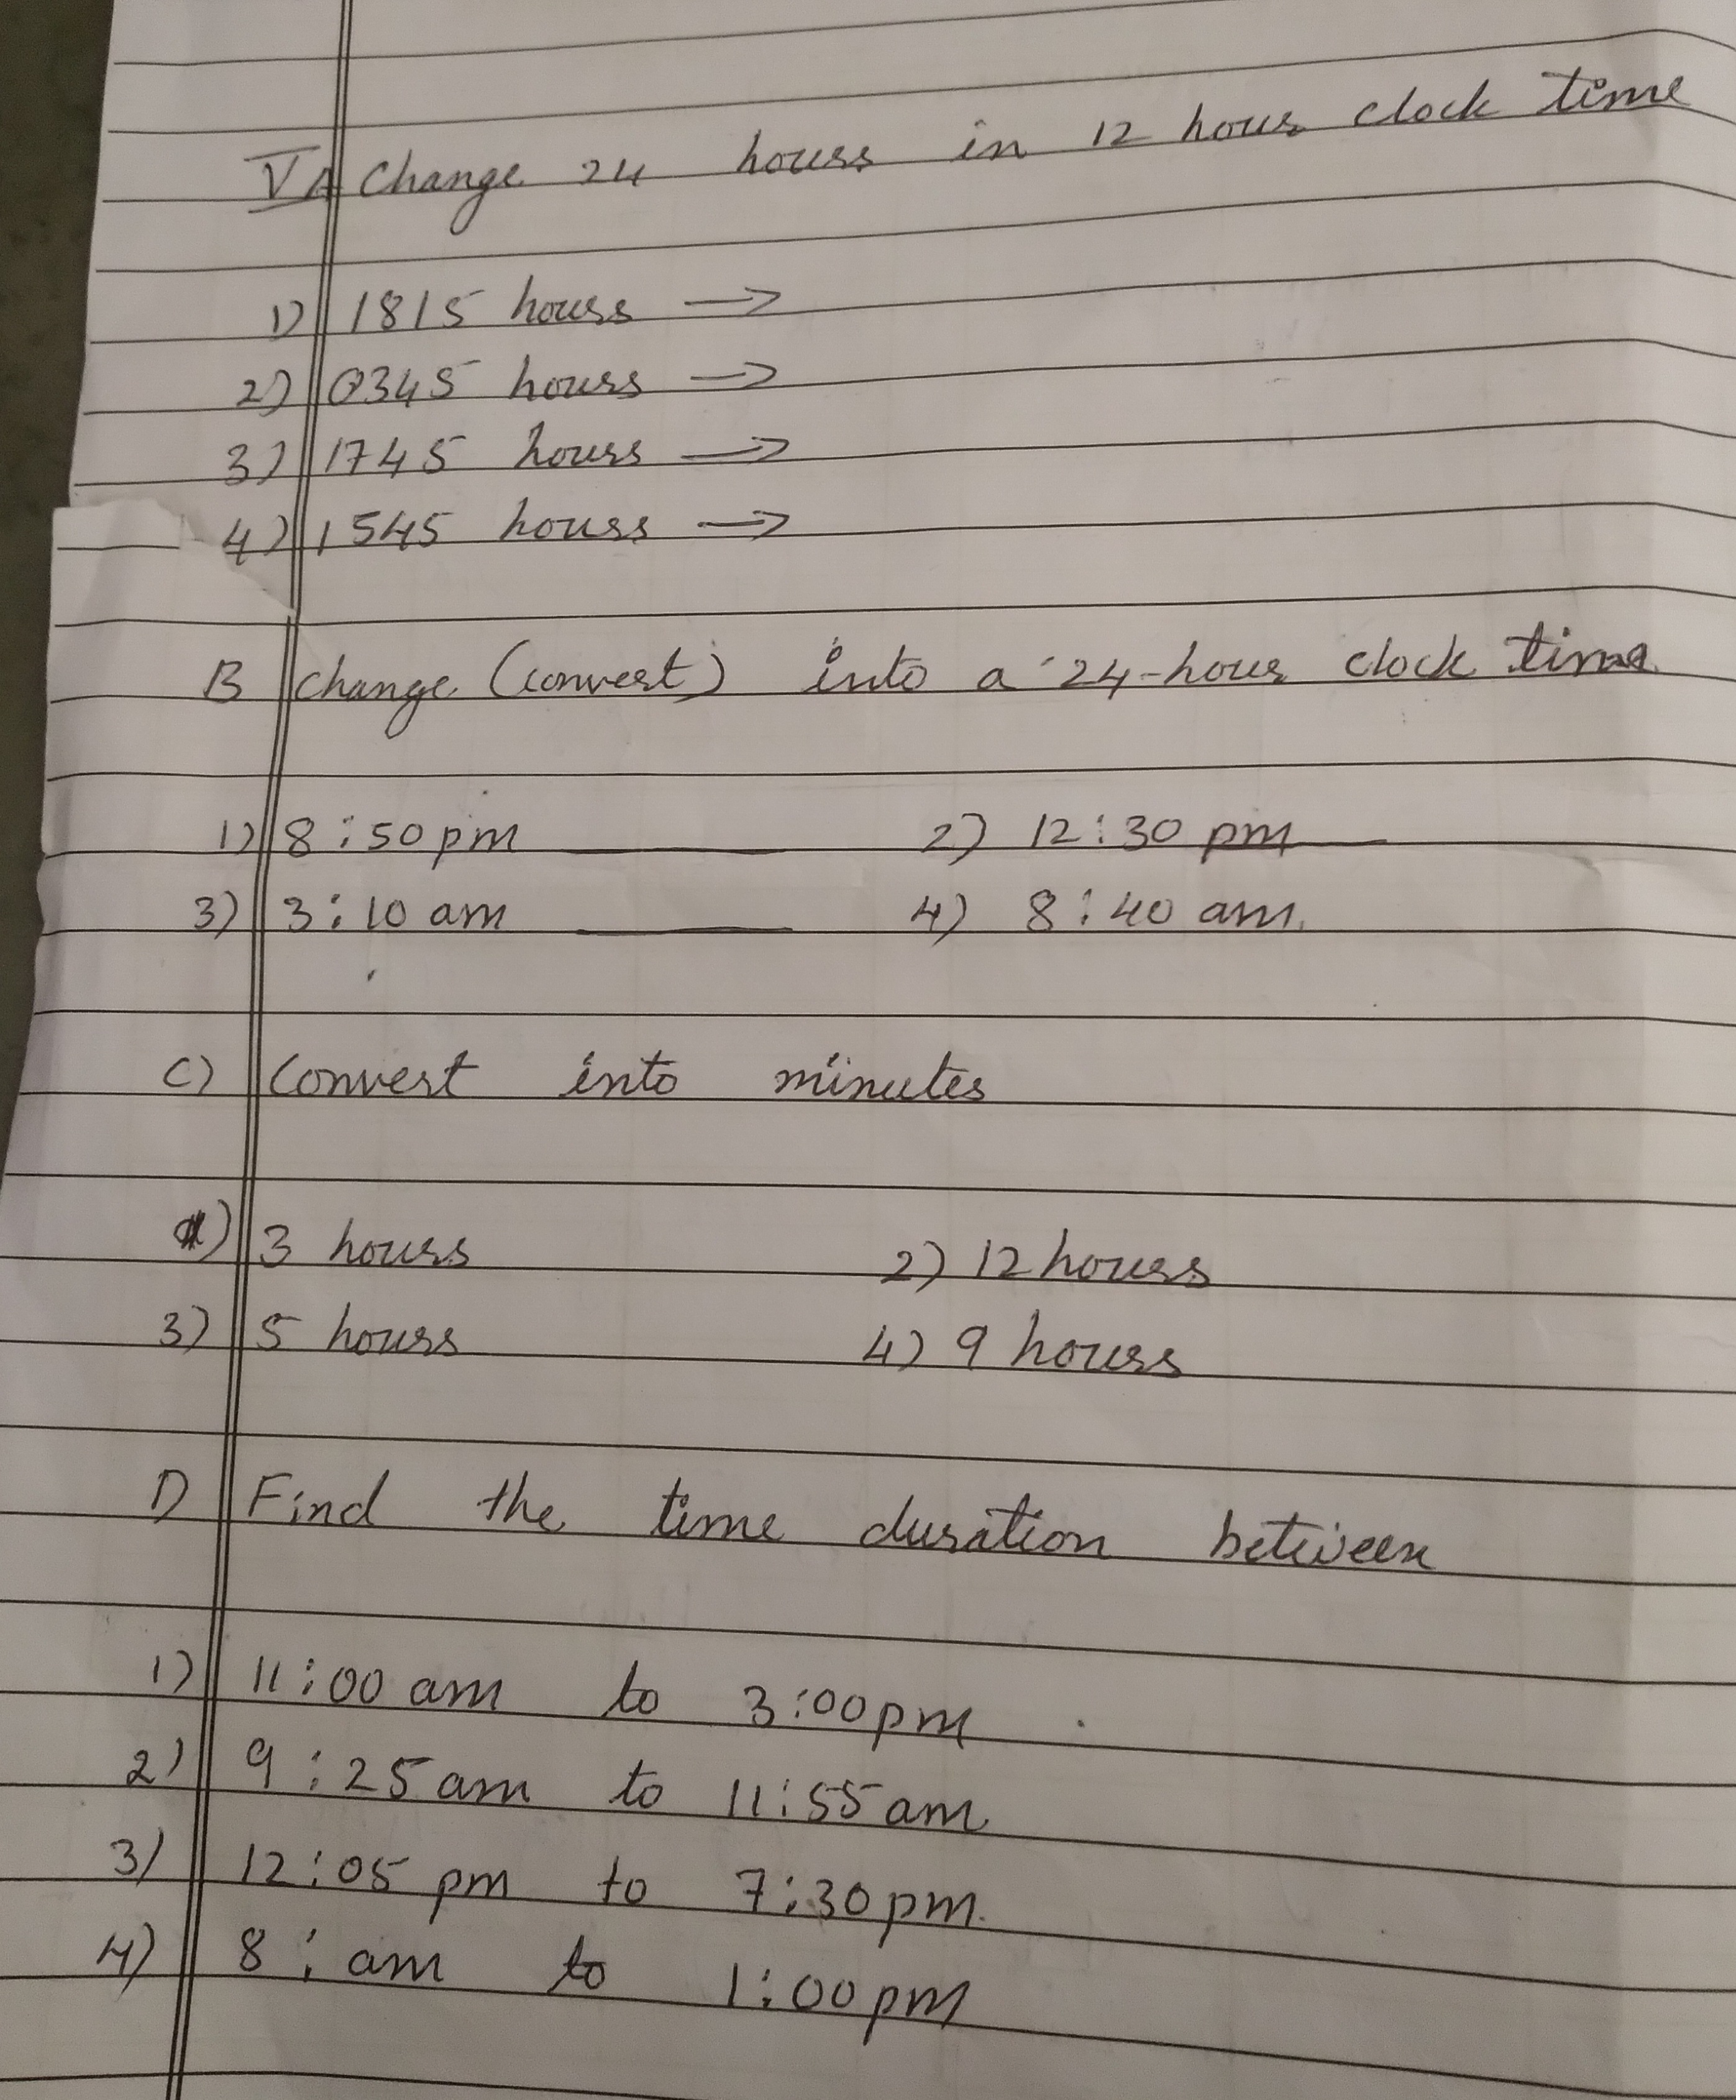 V A Change 24 hours in 12 hour clock time
1) 1815 hours →
2) 0345 hours →
3) 1745 hours →
4) 1545 hours →
B change (convert) into a 24-hour clock time
1) 8:50 pm ____ 2) 12:30 pm
3) 3:10 am ____ 4) 8:40 am.
C) Convert into minutes
1) 3 hours 2) 12 hours
3) 5 hours 4) 9 hours
D Find the time duration between
1) 11:00 am to 3:00 pm
2) 9:25 am to 11:55 am
3) 12:05 pm to 7:30 pm.
4) 8: am to 1:00 pm